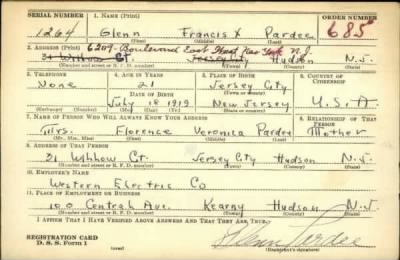 SERIAL NUMBER 1. NAME (Print) ORDER NUMBER
1264 Glenn Francis X Pardee 685
(First) (Middle) (Last)
2. ADDRESS (Print) 6209 Boulevard East West New York N.J.
31 Willow CT. Jersey City Hudson N.J.
(Number and street or R. F. D. number) (Town) (County) (State)
3. TELEPHONE 4. AGE IN YEARS 5. PLACE OF BIRTH 6. COUNTRY OF CITIZENSHIP
None 21 Jersey City
DATE OF BIRTH (Town or county)
July 18 1919 New Jersey U.S.A.
(Exchange) (Number) (Mo.) (Day) (Yr.) (State or country)
7. NAME OF PERSON WHO WILL ALWAYS KNOW YOUR ADDRESS 8. RELATIONSHIP OF THAT PERSON
Mrs. Florence Veronica Pardee Mother
(Mr., Mrs., Miss) (First) (Middle) (Last)
9. ADDRESS OF THAT PERSON
31 Ct. Jersey City Hudson N.J.
(Number and street or R. F. D. number) (Town) (County) (State)
10. EMPLOYER'S NAME
Western Electric Co
11. PLACE OF EMPLOYMENT OR BUSINESS
100 Central Ave. Kearny Hudson N.J.
(Number and street or R. F. D. number) (Town) (County) (State)
I AFFIRM THAT I HAVE VERIFIED ABOVE ANSWERS AND THAT THEY ARE TRUE.
REGISTRATION CARD
D. S. S. Form 1 (over) Glenn Pardee
(Registrant's signature)